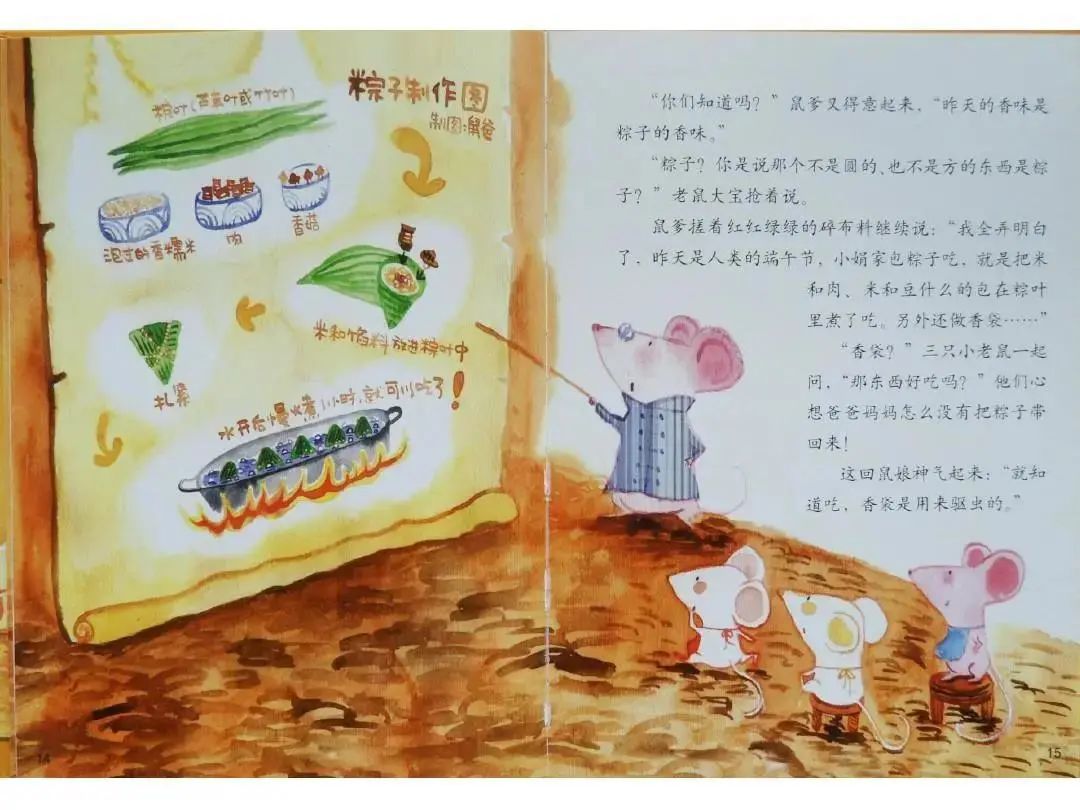 粽子制作图
制图:鼠爸
粽叶(芦苇叶或竹叶)
泡过的香糯米
肉
香菇
米和馅料放进粽叶中
扎紧
水开后慢煮1小时,就可以吃了!
14
“你们知道吗?”鼠爹又得意起来,“昨天的香味是
粽子的香味。”
“粽子?你是说那个不是圆的、也不是方的东西是粽
子?”老鼠大宝抢着说。
鼠爹搓着红红绿绿的碎布料继续说:“我全弄明白
了,昨天是人类的端午节,小娟家包粽子吃,就是把米
和肉、米和豆什么的包在粽叶
里煮了吃。另外还做香袋……”
“香袋?”三只小老鼠一起
问,“那东西好吃吗?”他们心
想爸爸妈妈怎么没有把粽子带
回来!
这回鼠娘神气起来:“就知
道吃,香袋是用来驱虫的。”
15